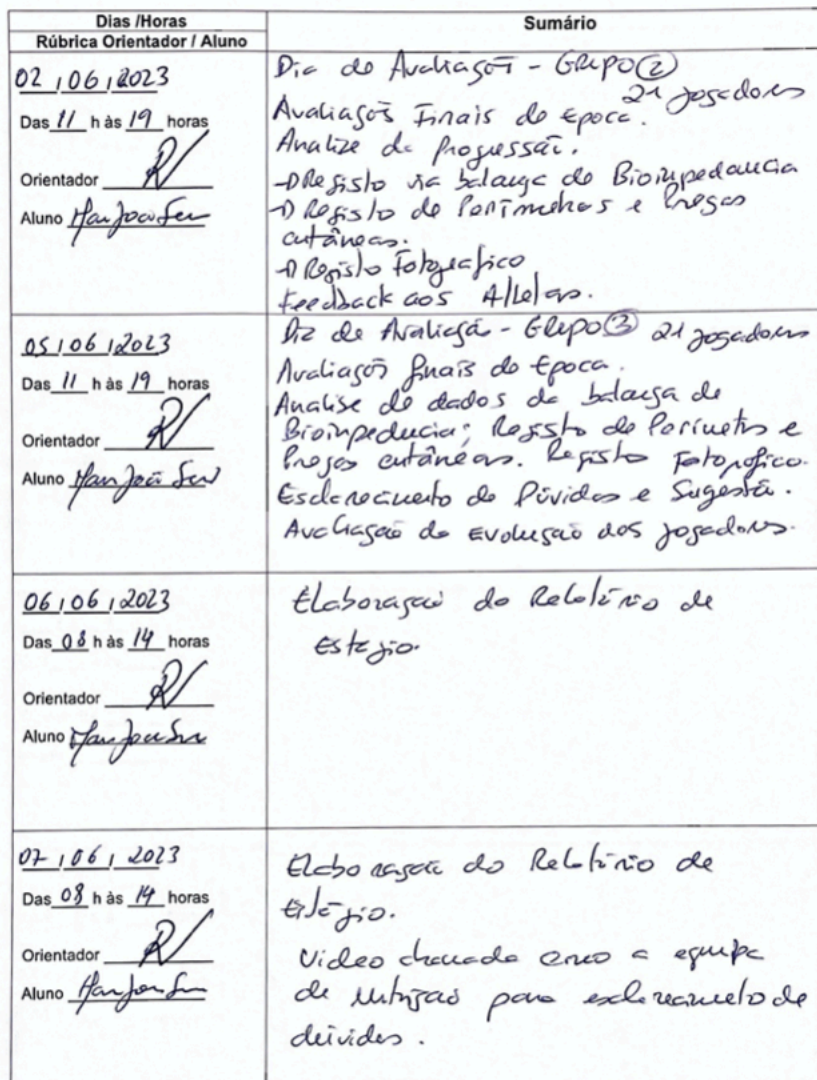 Dias /Horas
Rúbrica Orientador / Aluno
Sumário
02 / 06 / 2023
Das 11 h às 19 horas
Orientador
Aluno
Dia de Avaliação - Grupo 2
21 jogadores
Avaliações Finais de Epoca.
Analize de Progressão.
→ Registo via balança de Bioimpedancia
→ Registo de Perimetros e Pregas
cutâneas.
→ Registo Fotografico
Feedback aos Atletas.
05 / 06 / 2023
Das 11 h às 19 horas
Orientador
Aluno
Dia de Avaliação - Grupo 3 21 jogadores
Avaliações finais de Epoca.
Analise de dados da balança de
Bioimpedancia; Registo de Perimetros e
Pregas cutâneas. Registo Fotografico.
Esclarecimento de Dúvidas e Sugestão.
Avaliação da Evolução dos jogadores.
06 / 06 / 2023
Das 08 h às 14 horas
Orientador
Aluno
Elaboração do Relatório de
Estágio.
07 / 06 / 2023
Das 08 h às 14 horas
Orientador
Aluno
Elaboração do Relatório de
Estágio.
Video chamada com a equipa
de nutrição para esclarecimento de
dúvidas.